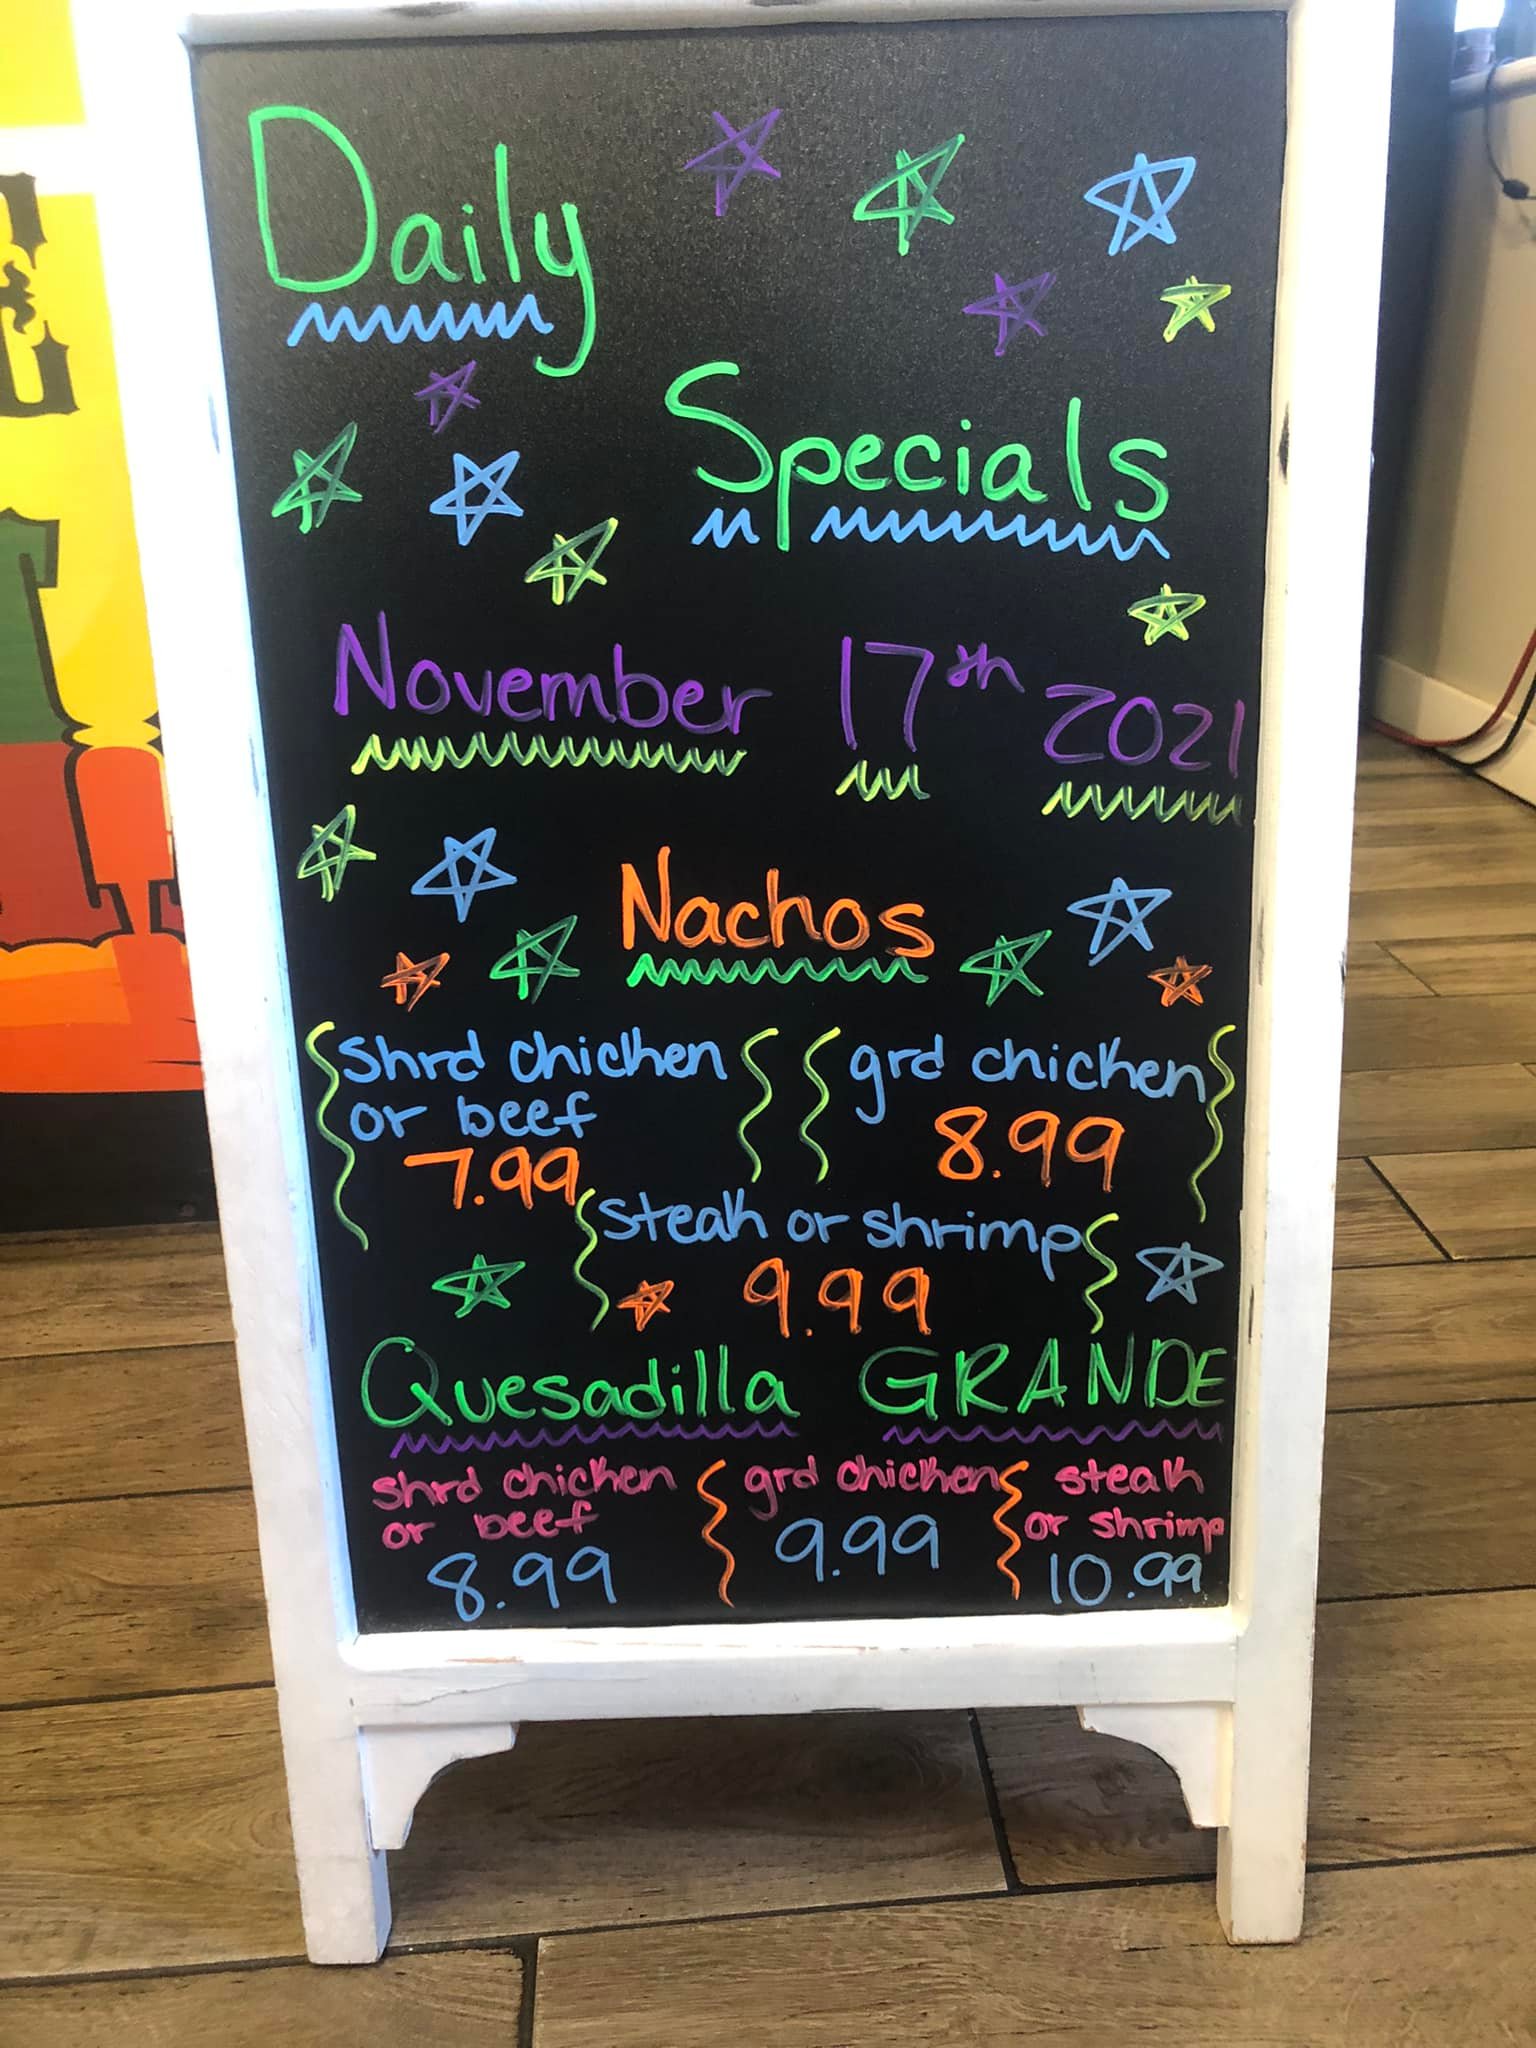 Daily
Specials
November 17th 2021
Nachos
shrd chicken
or beef
7.99
grd chicken
8.99
steak or shrimp
9.99
Quesadilla GRANDE
shrd chicken
or beef
8.99
grd chicken
9.99
steak
or shrimp
10.99